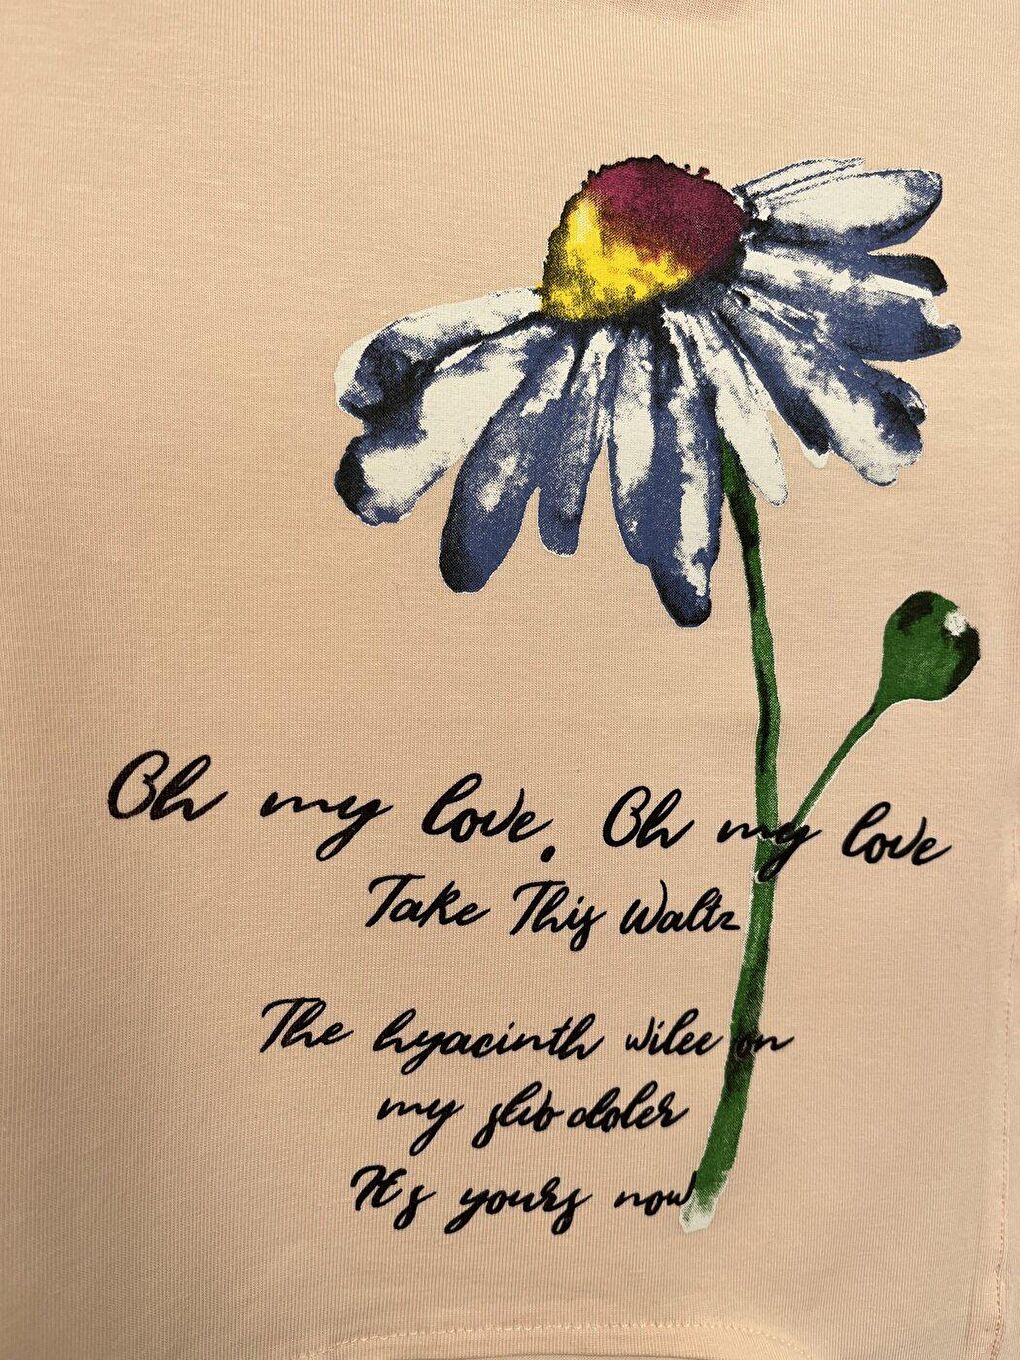 Oh my love. Oh my love
Take This Waltz
The hyacinth wilee on
my
It's yours now